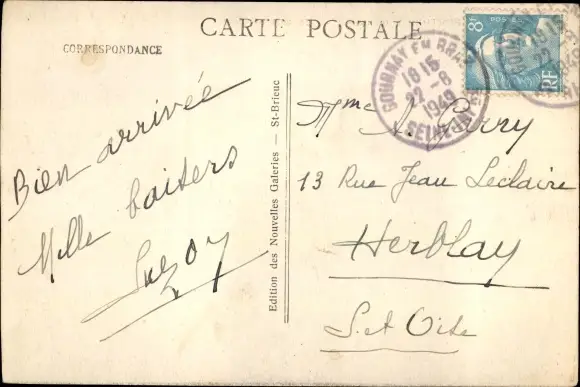 CARTE POSTALE
CORRESPONDANCE
Bien arrivée
Mille baisers
Suzy
Edition des Nouvelles Galeries — St-Brieuc
8F
POSTES
RF
GOURNAY EN BRAY
18 15
22 - 8
1949
SEINE
Mme A.
13 Rue Jean Leclaire
Herblay
S. et Oise